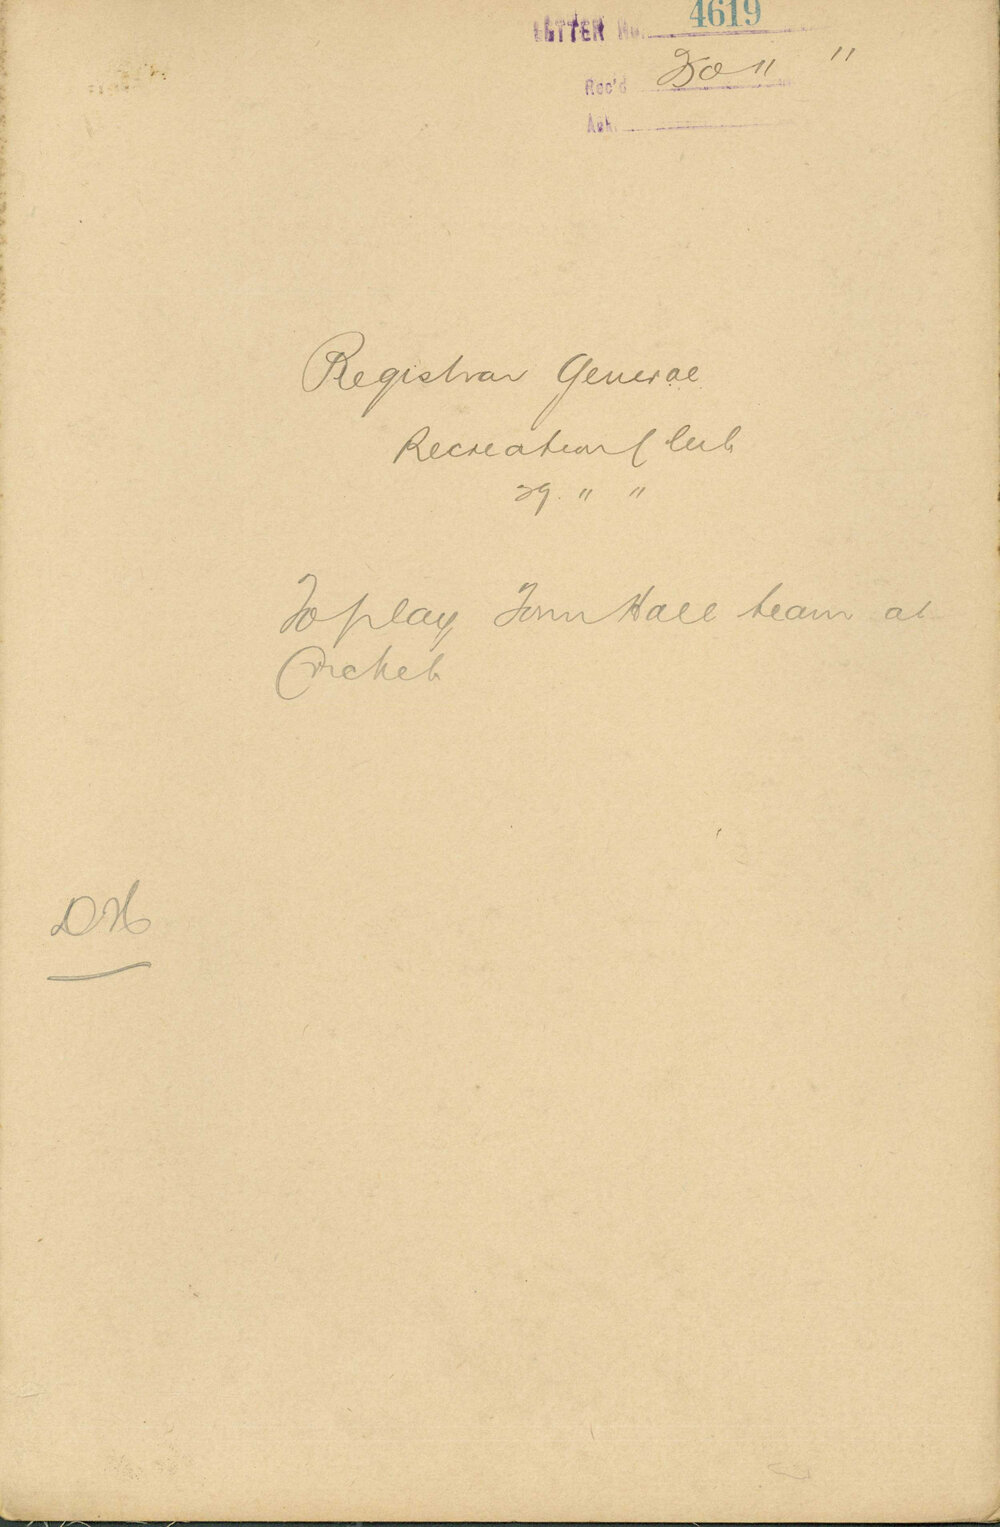 LETTER No. 4619
Rec'd 30 " "
Ack.
Registrar General
Recreation Club
29 " "
To play Town Hall team at
Cricket
DH